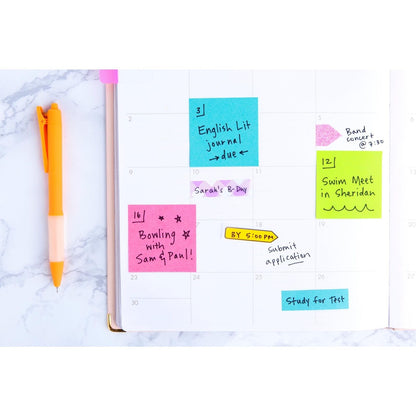 2
3
English Lit
journal
→due←
5
Band
concert
@ 7:30
12
Swim Meet
in Sheridan
10
11
Sarah's B-Day
16
Bowling
with
Sam & Paul!
BY 5:00 PM
Submit
application
23
24
25
26
Study for Test
30